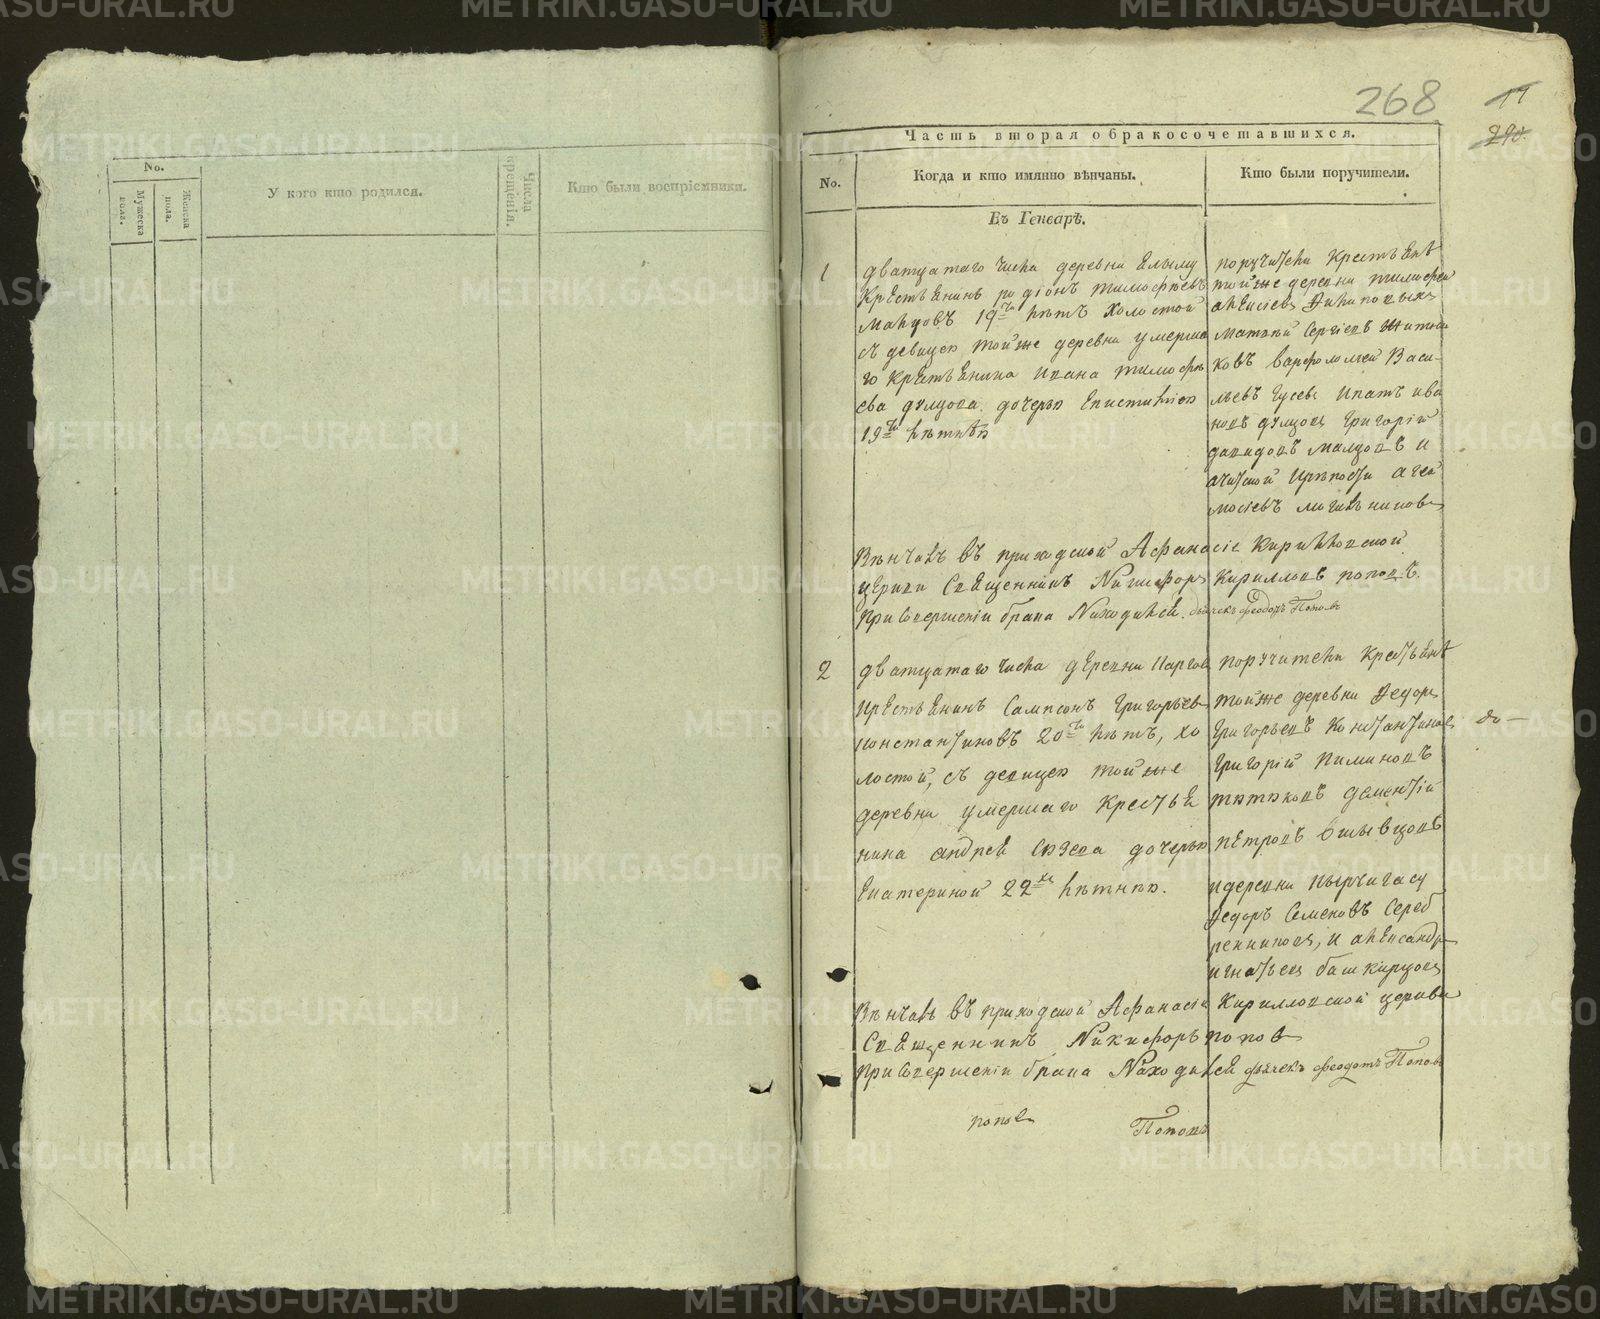 268
11
290
No.
Мужеска пола.
Женска пола.
У кого кто родился.
Числа крещенія.
Кто были воспріемники.
Часть вторая о бракосочетавшихся.
No.
Когда и кто имянно вѣнчаны.
Кто были поручители.
Въ Генварѣ.
1
дватцатаго числа деревни
Крестьенинъ родіонъ тимофѣевъ
19 лѣтъ холостой
съ девицею тойже деревни умерша
го крестьенина Ивана тимофѣ
ева дочерью
19 лѣтнею
поручители Крестьенѣ
тойже деревни тимофей
Матвѣй Сергіевъ
ковъ варфоломей Васи-
льевъ Гусевъ Ипатъ ива
новъ Григорій
давидовъ и
ачитской крѣпости
Вѣнчалъ въ приходской Афанасіе Кирилловской
церкви Священникъ Никифоръ Кирилловъ поповъ.
При Совершеніи брака Находился дьячекъ феодотъ Поповъ
2
дватцатаго числа деревни
крестьенинъ Сампсонъ Григорьевъ
константиновъ 20 лѣтъ, хо
лостой, съ девицею тойже
деревни умершаго Крестье
нина андрея дочерью
Екатериной 22 лѣтнею.
поручители Крестьенѣ
тойже деревни Федоръ
Григорьевъ Константиновъ
Григорій Пиминовъ
дементій
петровъ
и деревни
Федоръ Семеновъ Сереб
ренниковъ, и александръ
игнатьевъ башкирцовъ
Вѣнчалъ въ приходской Афанасіе Кирилловской церкви
Священникъ Никифоръ поповъ
При Совершеніи брака Находился дьячекъ феодотъ Поповъ
поповъ
Поповъ
METRIKI.GASO-URAL.RU